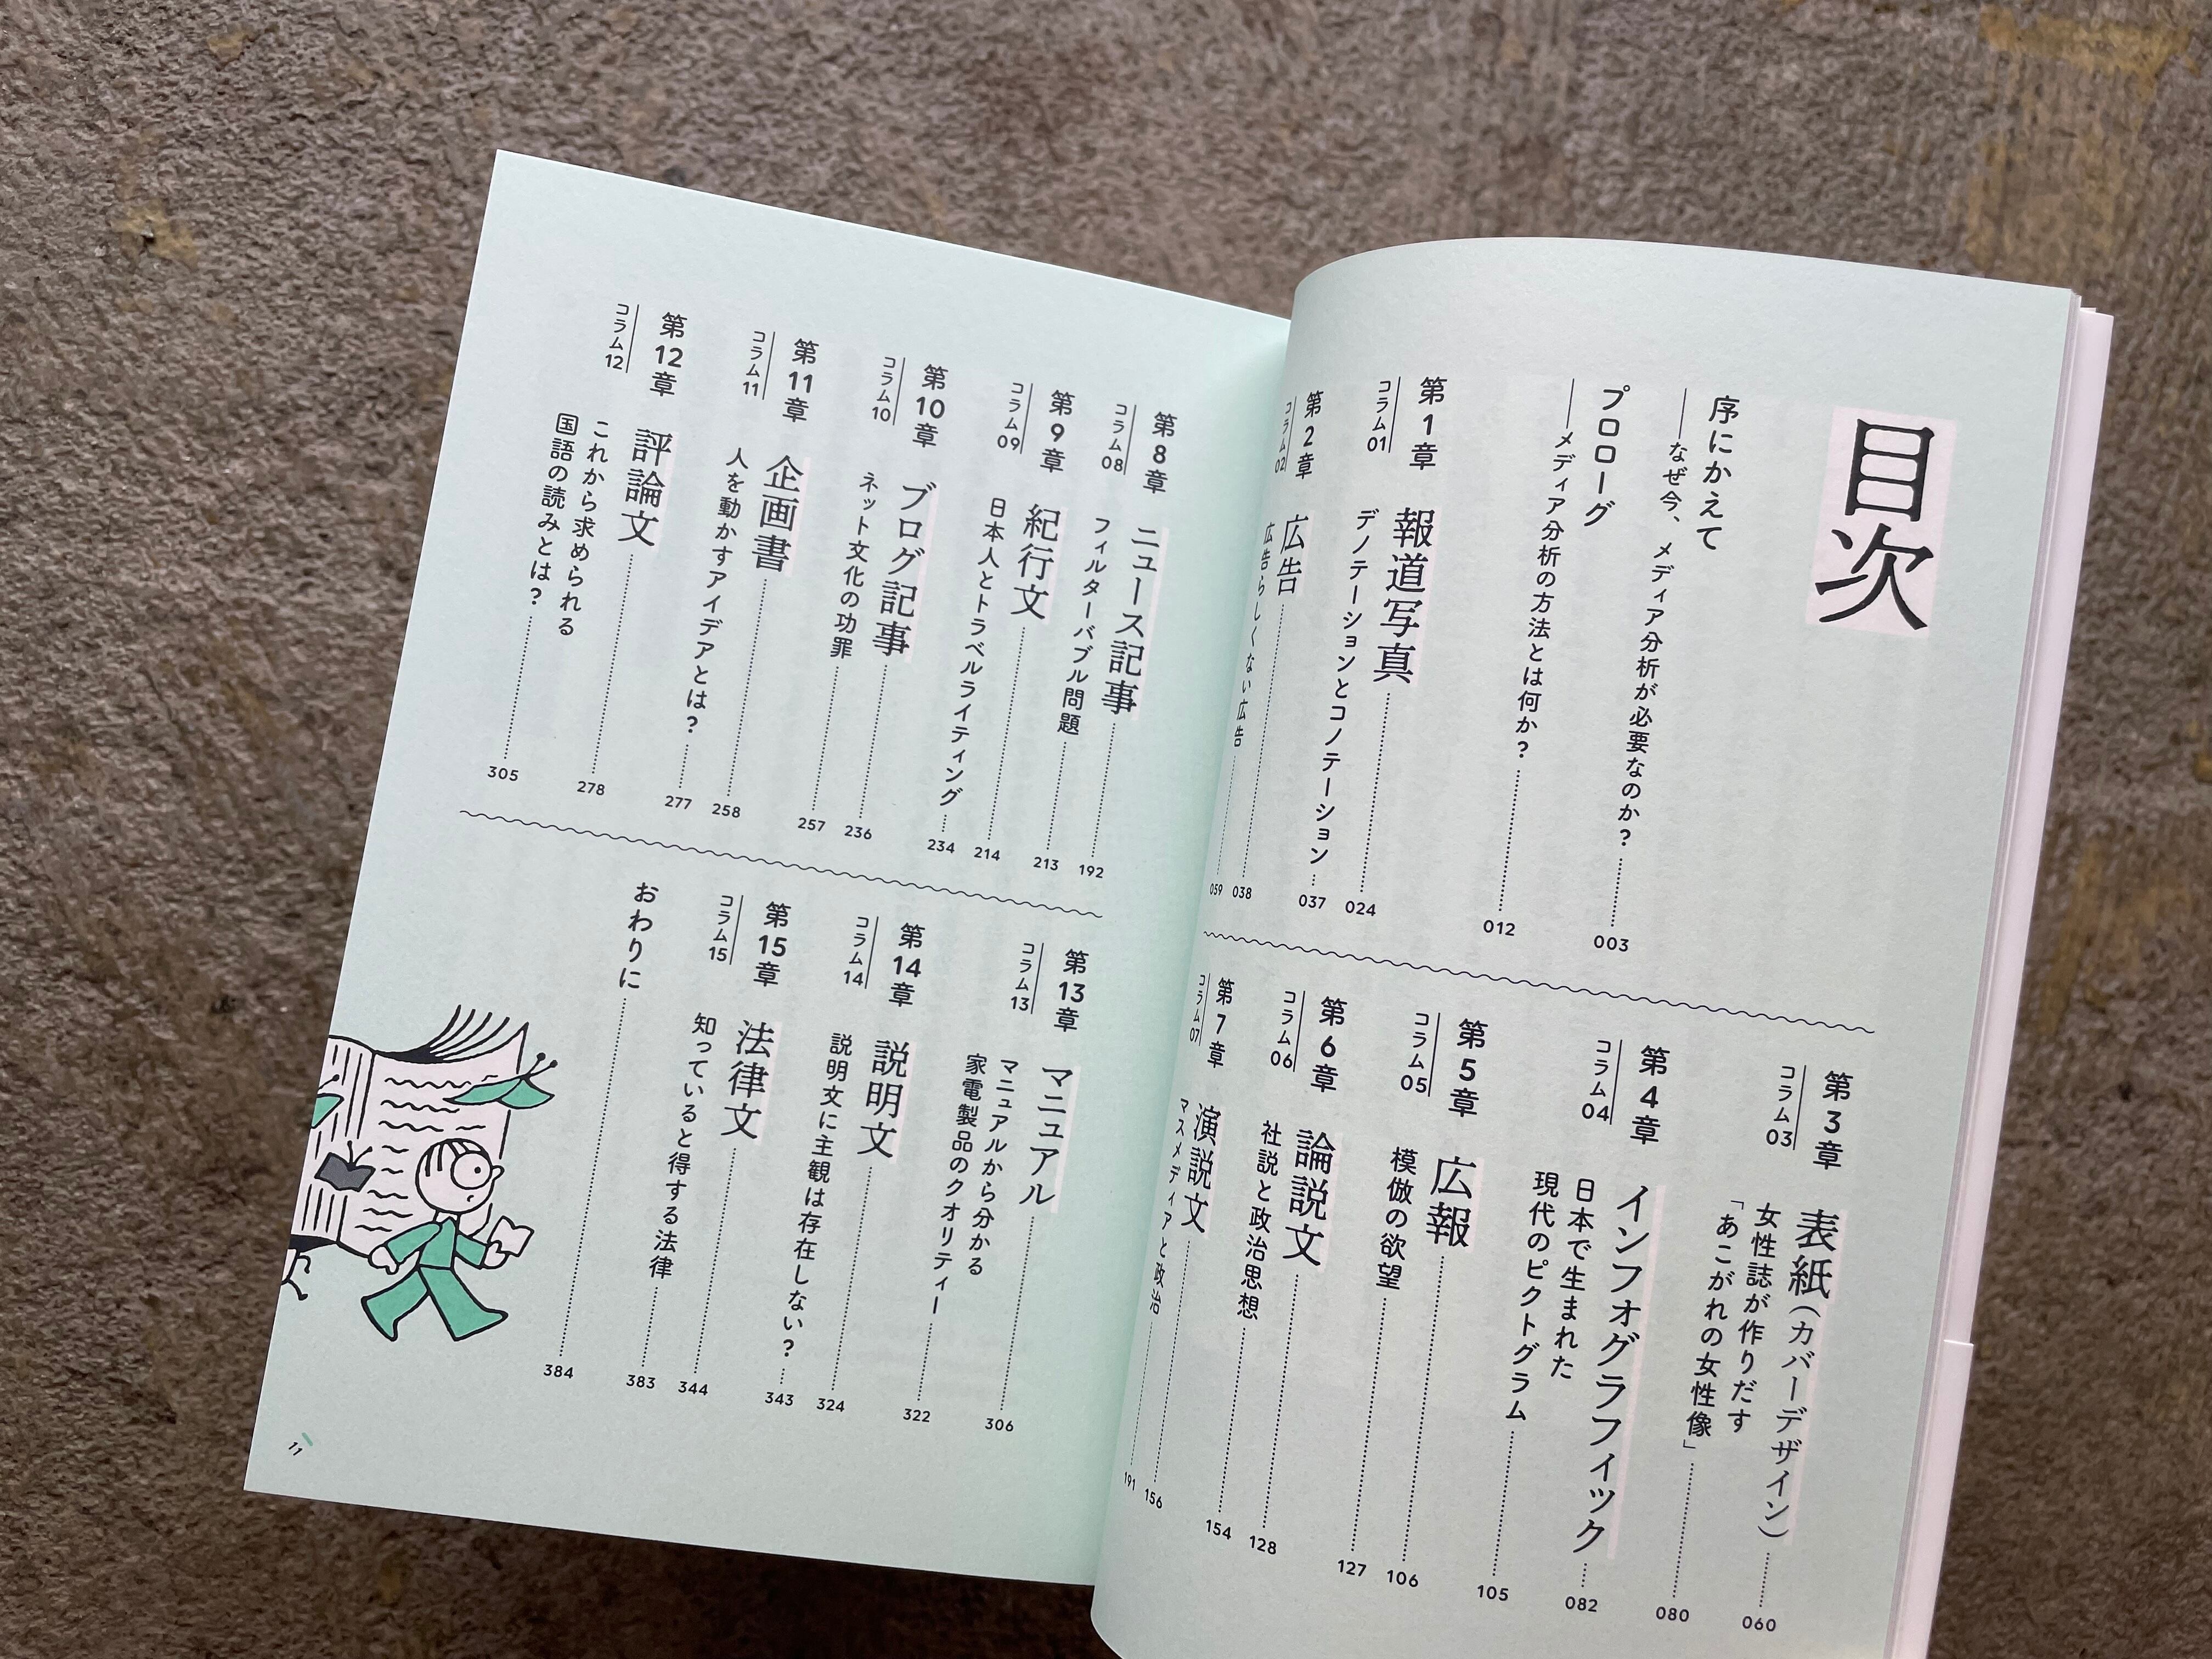 目次
序にかえて
──なぜ今、メディア分析が必要なのか？ 003
プロローグ
──メディア分析の方法とは何か？ 012
第1章 報道写真 024
コラム01 デノテーションとコノテーション 037
第2章 広告 038
コラム02 広告らしくない広告 059
第3章 表紙（カバーデザイン） 060
コラム03 女性誌が作りだす
「あこがれの女性像」 080
第4章 インフォグラフィック 082
コラム04 日本で生まれた
現代のピクトグラム 105
第5章 広報 106
コラム05 模倣の欲望 127
第6章 論説文 128
コラム06 社説と政治思想 154
第7章 演説文 156
コラム07 マスメディアと政治 191
第8章 ニュース記事 192
コラム08 フィルターバブル問題 213
第9章 紀行文 214
コラム09 日本人とトラベルライティング 234
第10章 ブログ記事 236
コラム10 ネット文化の功罪 257
第11章 企画書 258
コラム11 人を動かすアイデアとは？ 277
第12章 評論文 278
コラム12 これから求められる
国語の読みとは？ 305
第13章 マニュアル 306
コラム13 マニュアルから分かる
家電製品のクオリティー 322
第14章 説明文 324
コラム14 説明文に主観は存在しない？ 343
第15章 法律文 344
コラム15 知っていると得する法律 383
おわりに 384
11